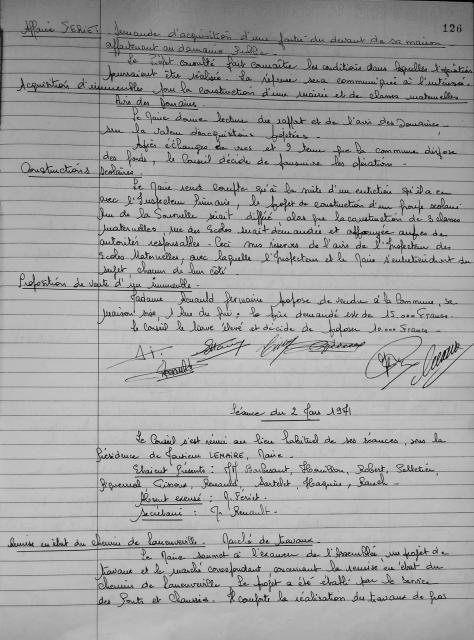 126
Affaire SERIET : Demande d'acquisition d'une partie du devant de sa maison
appartenant au domaine public.
Le Préfet consulté fait connaître les conditions dans lesquelles l'opération
pourrait être réalisée. La réponse sera communiquée à l'intéressé.
Acquisition d'immeubles pour la construction d'une mairie et de classes maternelles
Avis des Domaines.
Le Maire donne lecture du rapport et de l'avis des Domaines
sur la valeur d'acquisitions
Après échanges de vues et tenu que la commune dispose
des fonds, le Conseil décide de poursuivre les opérations.
Constructions scolaires.
Le Maire rend compte qu'à la suite d'un entretien qu'il a eu
avec l'Inspecteur Primaire, le projet de construction d'un groupe scolaire
rue de la serait différé alors que la construction de 3 classes
maternelles, rue des Ecoles serait demandée et appuyée auprès des
autorités responsables. Ceci sous réserves de l'avis de l'Inspecteur des
Ecoles Maternelles, avec laquelle l'Inspecteur et le Maire s'entretiendront du
sujet chacun de leur côté.
Proposition de vente d'un immeuble.
Madame Renauld Germaine propose de vendre à la Commune, sa
maison sise, 1 Rue du . Le prix demandé est de 15.000 Francs.
Le Conseil le trouve élevé et décide de proposer 10.000 Francs.
Séance du 2 Mars 1971
Le Conseil s'est réuni au lieu habituel de ses séances, sous la
Présidence de Monsieur LEMAIRE, Maire.
Etaient Présents : MM Robert, Pelletier,
Renauld,
Absent excusé : M. Seriet.
Secrétaire : M. Renault.
Remise en état du chemin de . Marché de travaux.
Le Maire soumet à l'examen de l'Assemblée un projet de
travaux et le marché correspondant concernant la remise en état du
chemin de . Le projet a été établi par le service
des Ponts et Chaussées. Il comporte la réalisation de travaux de gros